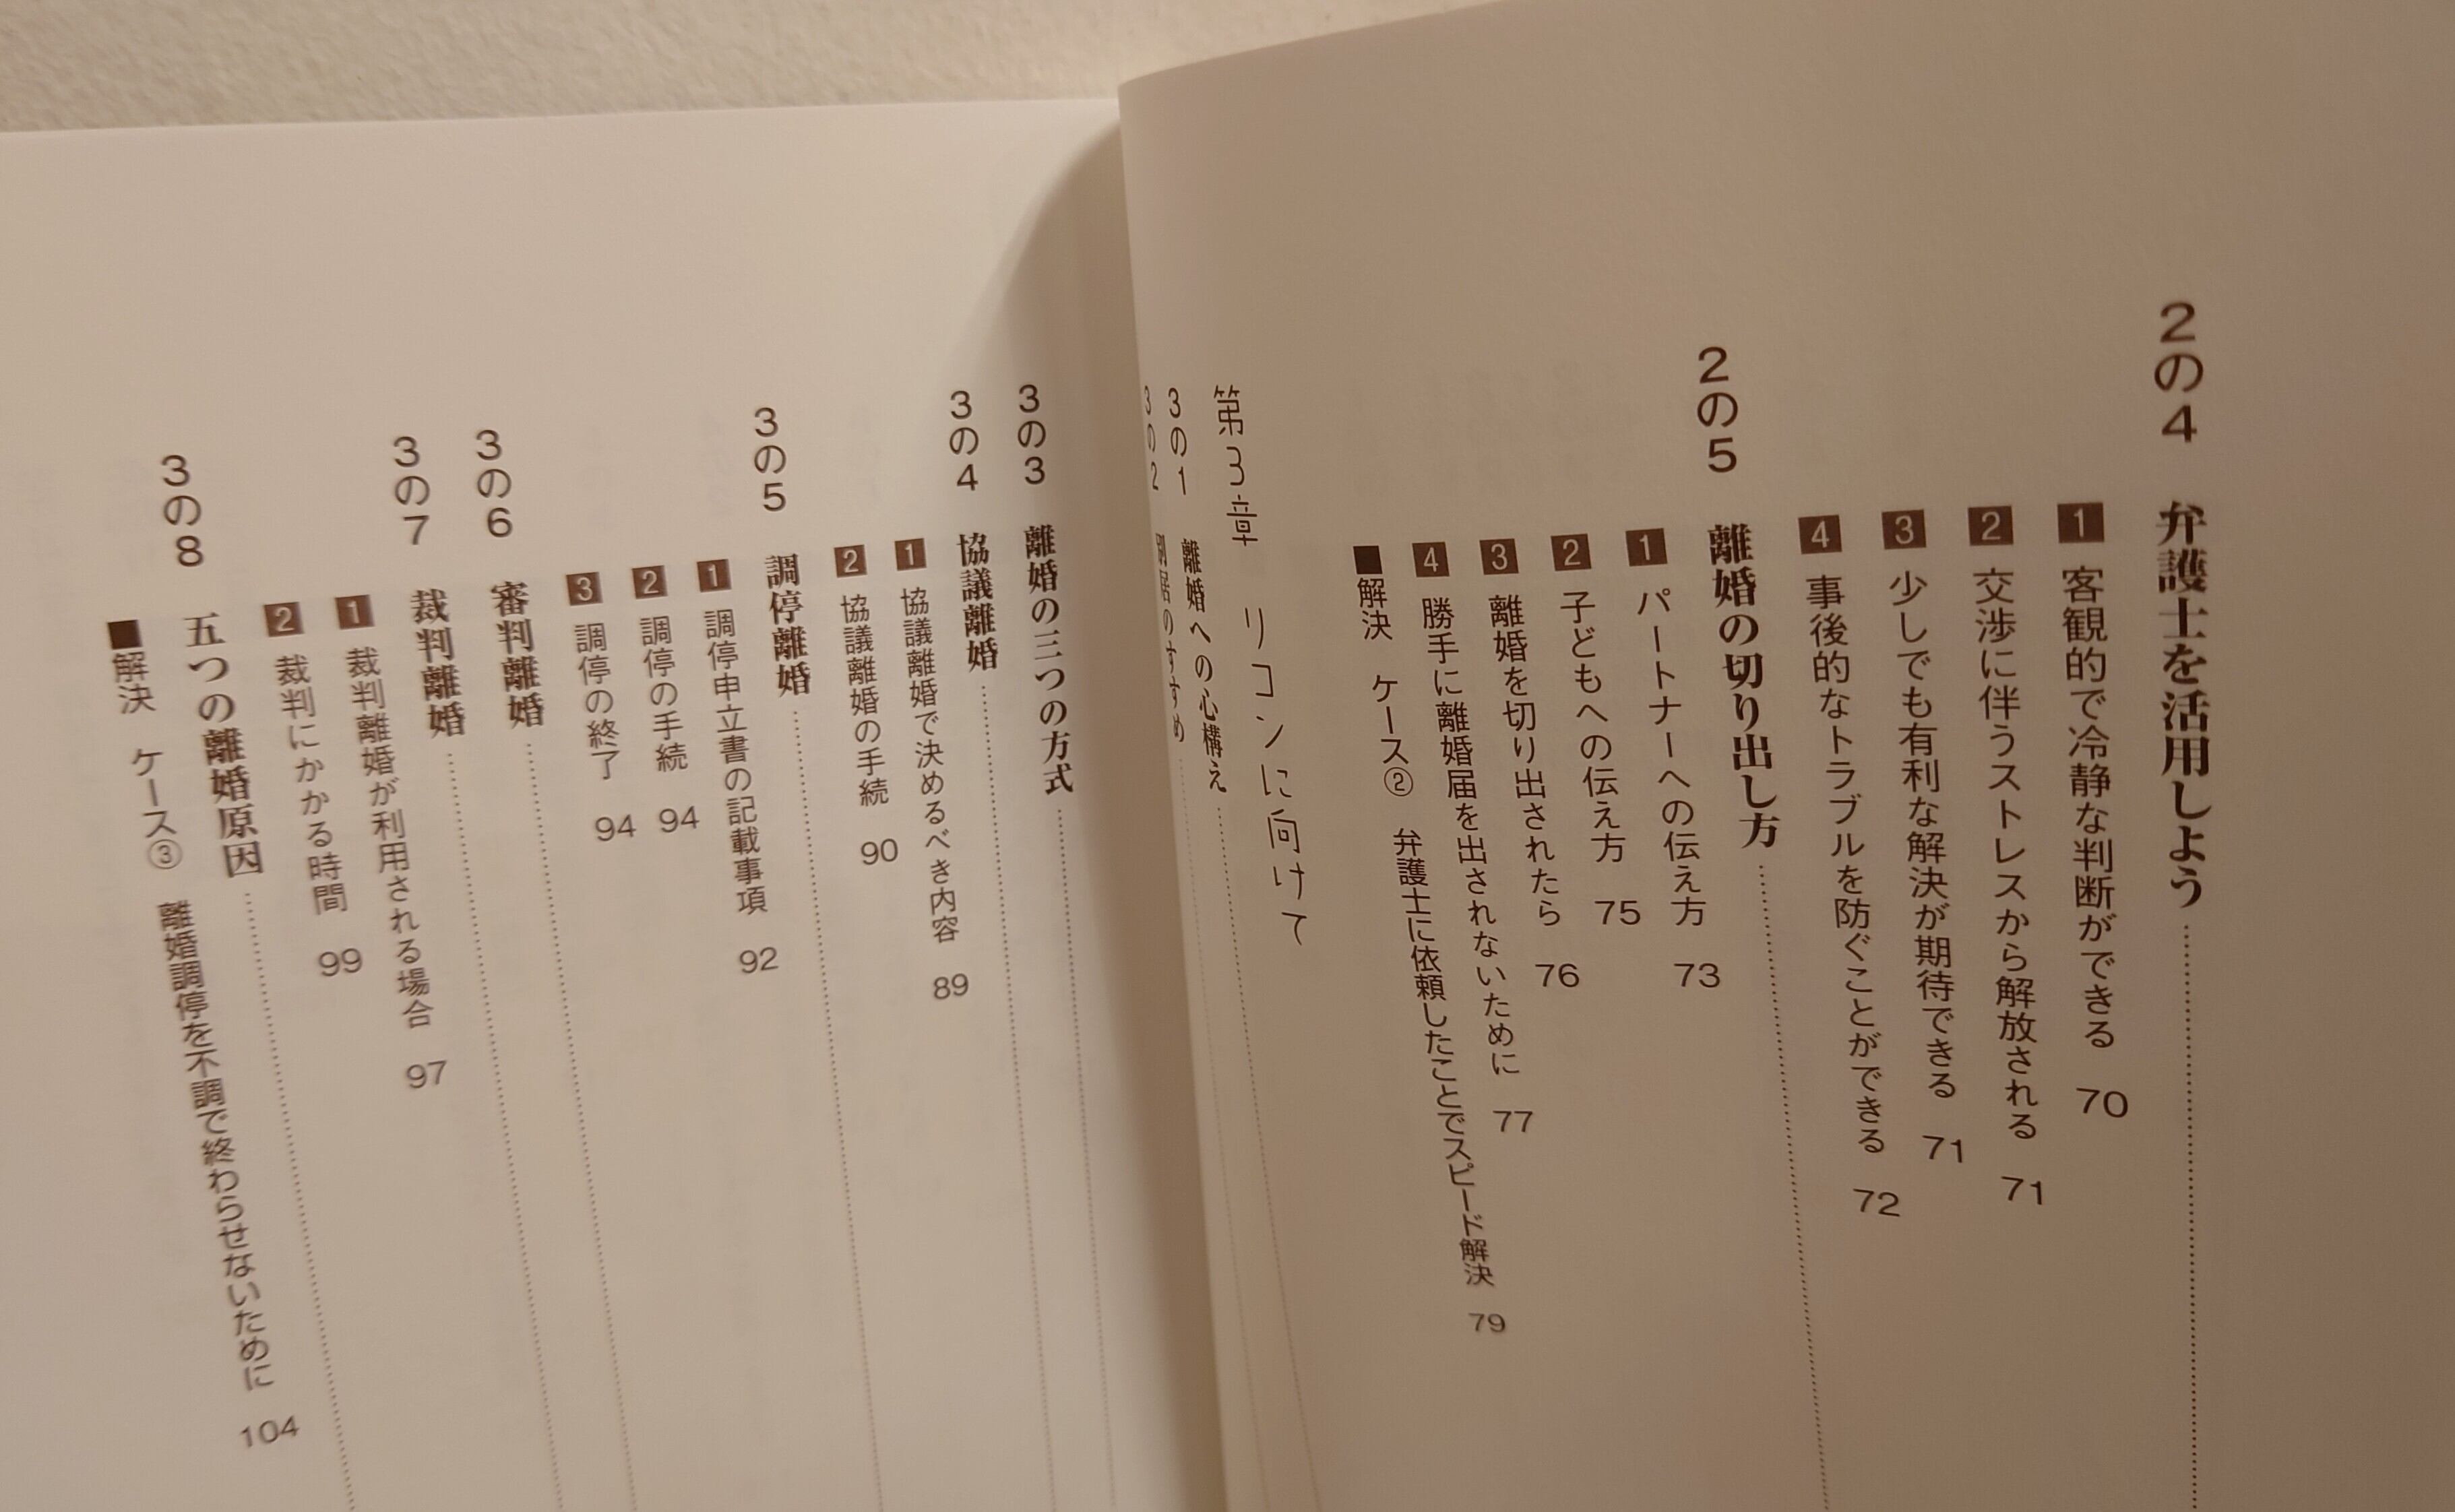 2の4 弁護士を活用しよう
1 客観的で冷静な判断ができる 70
2 交渉に伴うストレスから解放される 71
3 少しでも有利な解決が期待できる 71
4 事後的なトラブルを防ぐことができる 72
2の5 離婚の切り出し方
1 パートナーへの伝え方 73
2 子どもへの伝え方 75
3 離婚を切り出されたら 76
4 勝手に離婚届を出されないために 77
■解決 ケース② 弁護士に依頼したことでスピード解決 79
第3章 リコンに向けて
3の1 離婚への心構え
3の2 別居のすすめ
3の3 離婚の三つの方式
3の4 協議離婚
1 協議離婚で決めるべき内容 89
2 協議離婚の手続 90
3の5 調停離婚
1 調停申立書の記載事項 92
2 調停の手続 94
3 調停の終了 94
3の6 審判離婚
3の7 裁判離婚
1 裁判離婚が利用される場合 97
2 裁判にかかる時間 99
3の8 五つの離婚原因
■解決 ケース③ 離婚調停を不調で終わらせないために 104